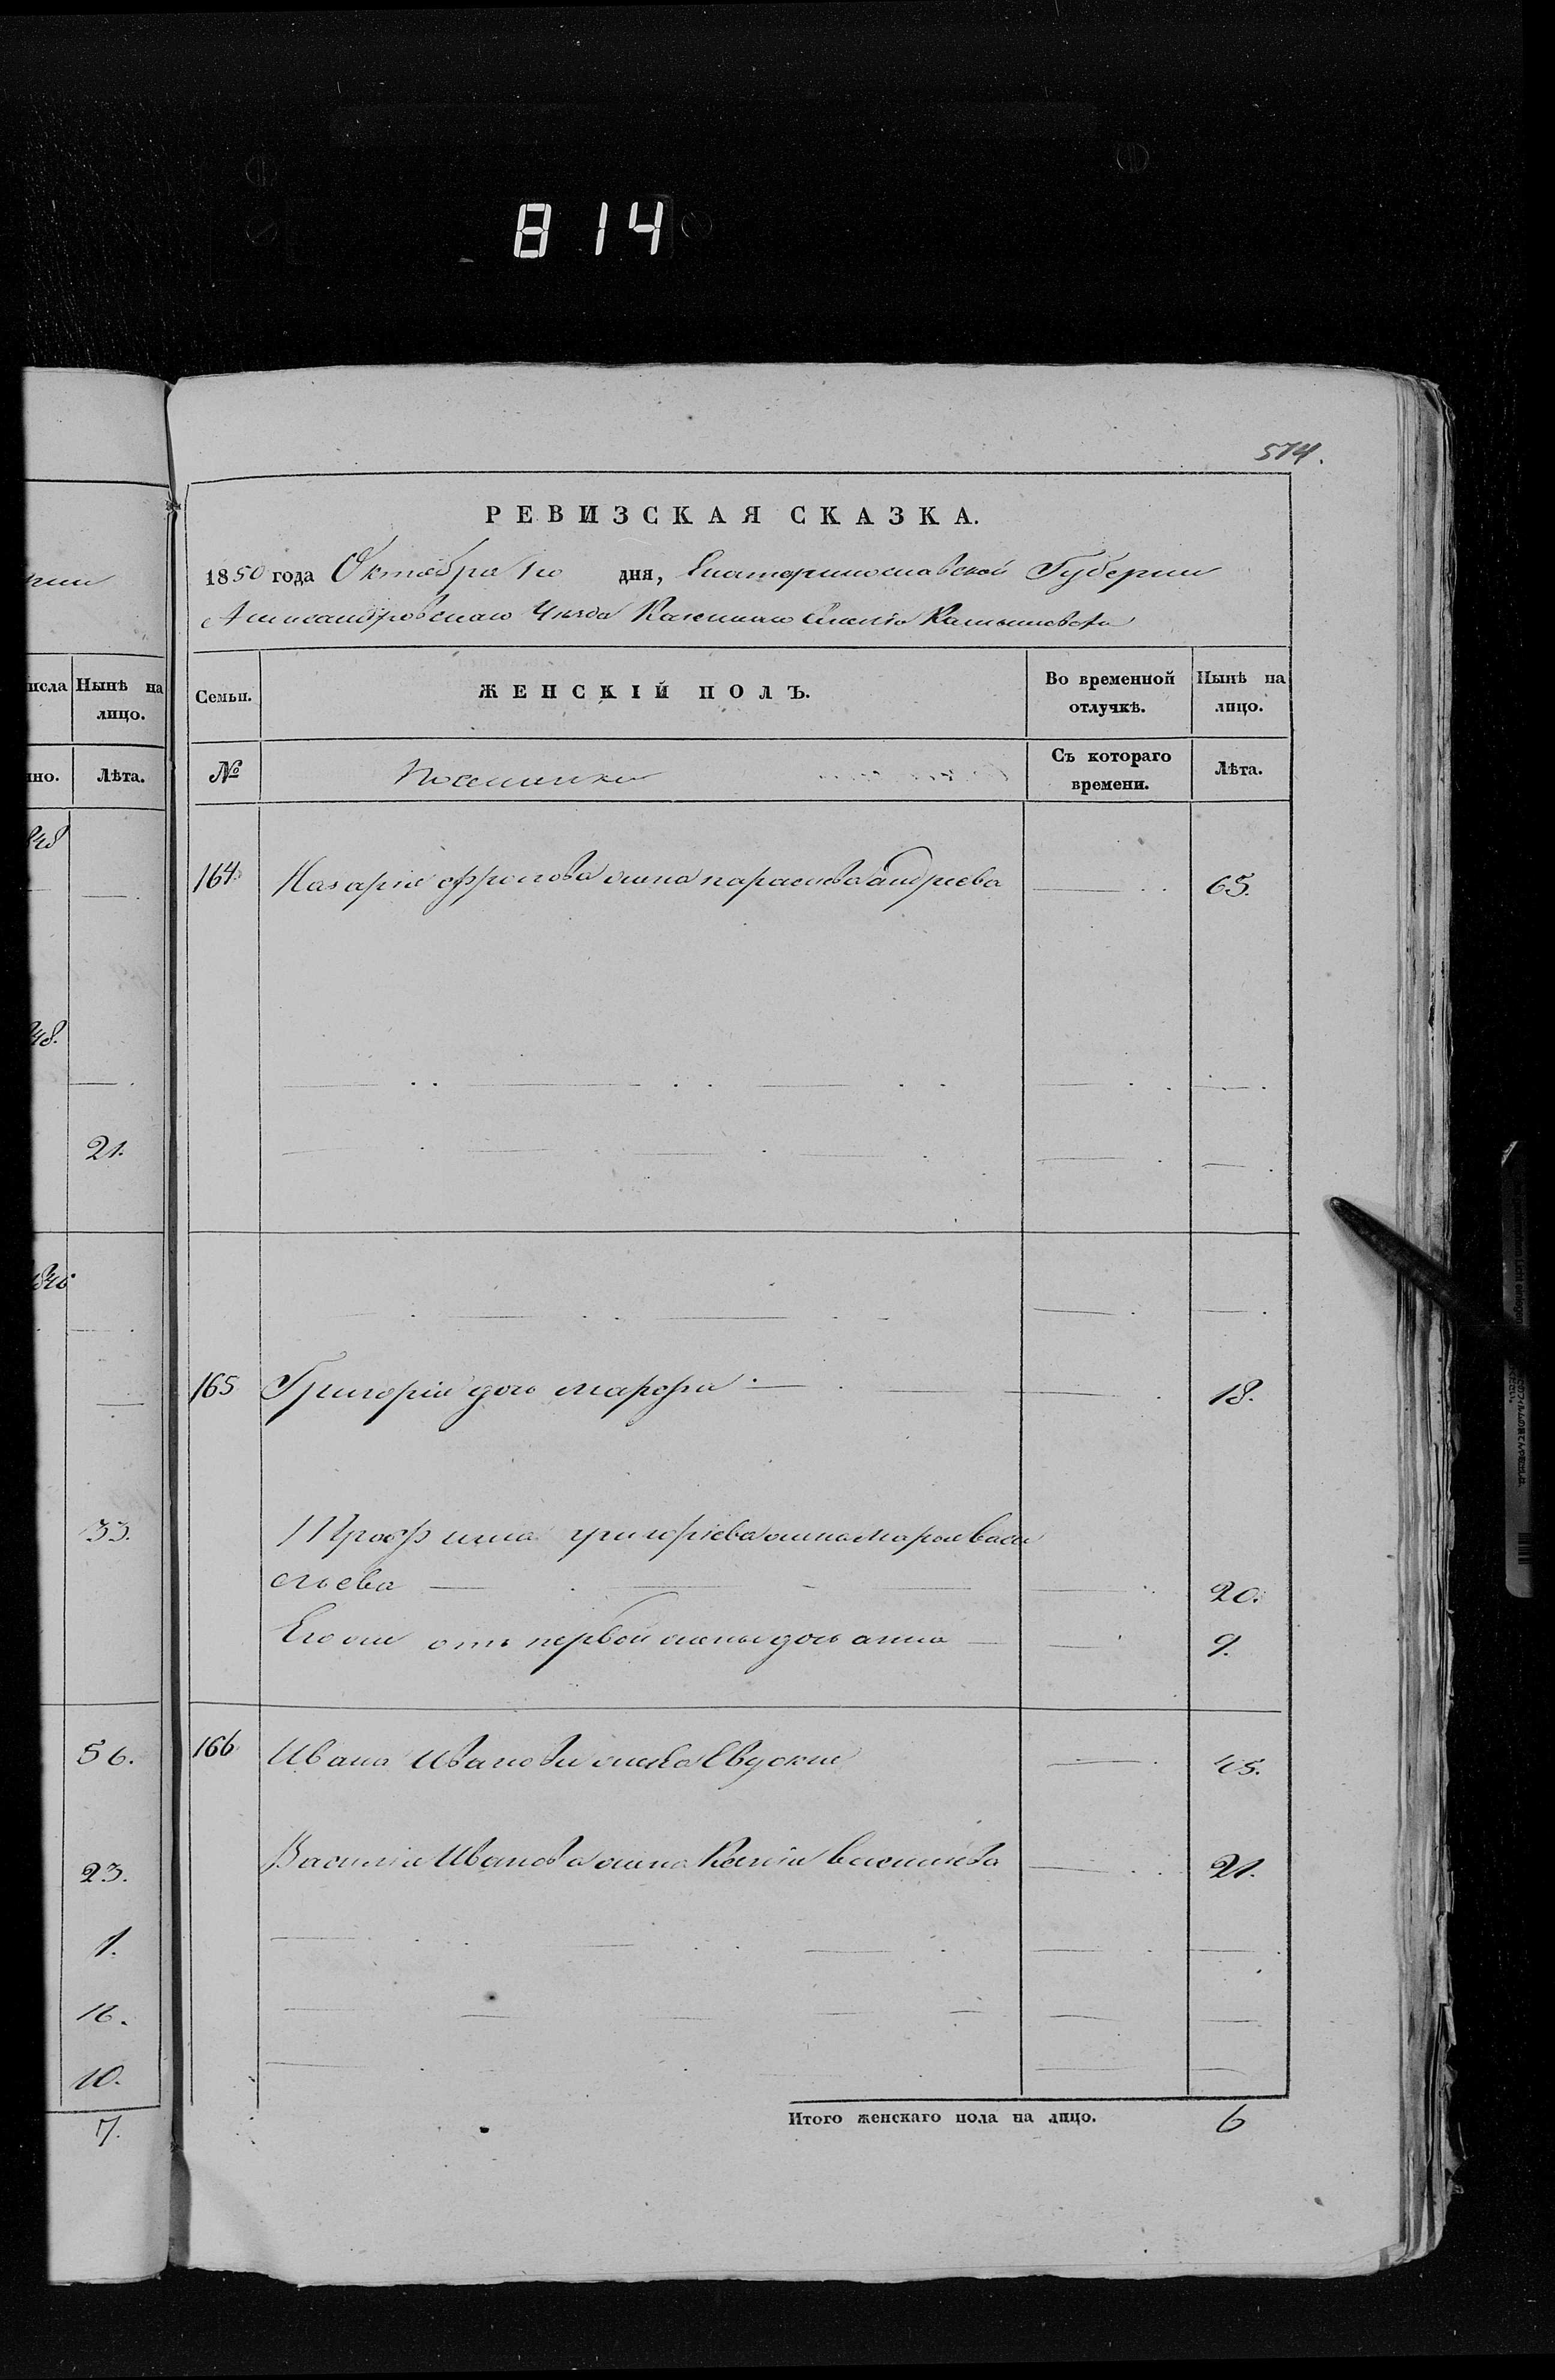 814
574.
РЕВИЗСКАЯ СКАЗКА.
1850 года Октября 1го дня, Екатеринославской Губерніи
Александровскаго Уезда Казеннаго Селенія
Семьи.
ЖЕНСКІЙ ПОЛЪ.
Во временной отлучкѣ.
Нынѣ на лицо.
№
Поселянки
Съ котораго времени.
Лѣта.
164. Назарія Фролова жена параскева андреева 65.
165 Григорія дочь марфа 18.
григорьева жена марья васи
льева 20.
Его же отъ первой жены дочь анна 9.
166 Ивана Иванова жена Евдокия 45.
Василія Иванова жена Ксенія василиева 21.
Итого женскаго пола на лицо. 6
рніи
исла
Нынѣ на лицо.
но.
Лѣта.
848
48.
21.
33.
56.
23.
1.
16.
10.
7.